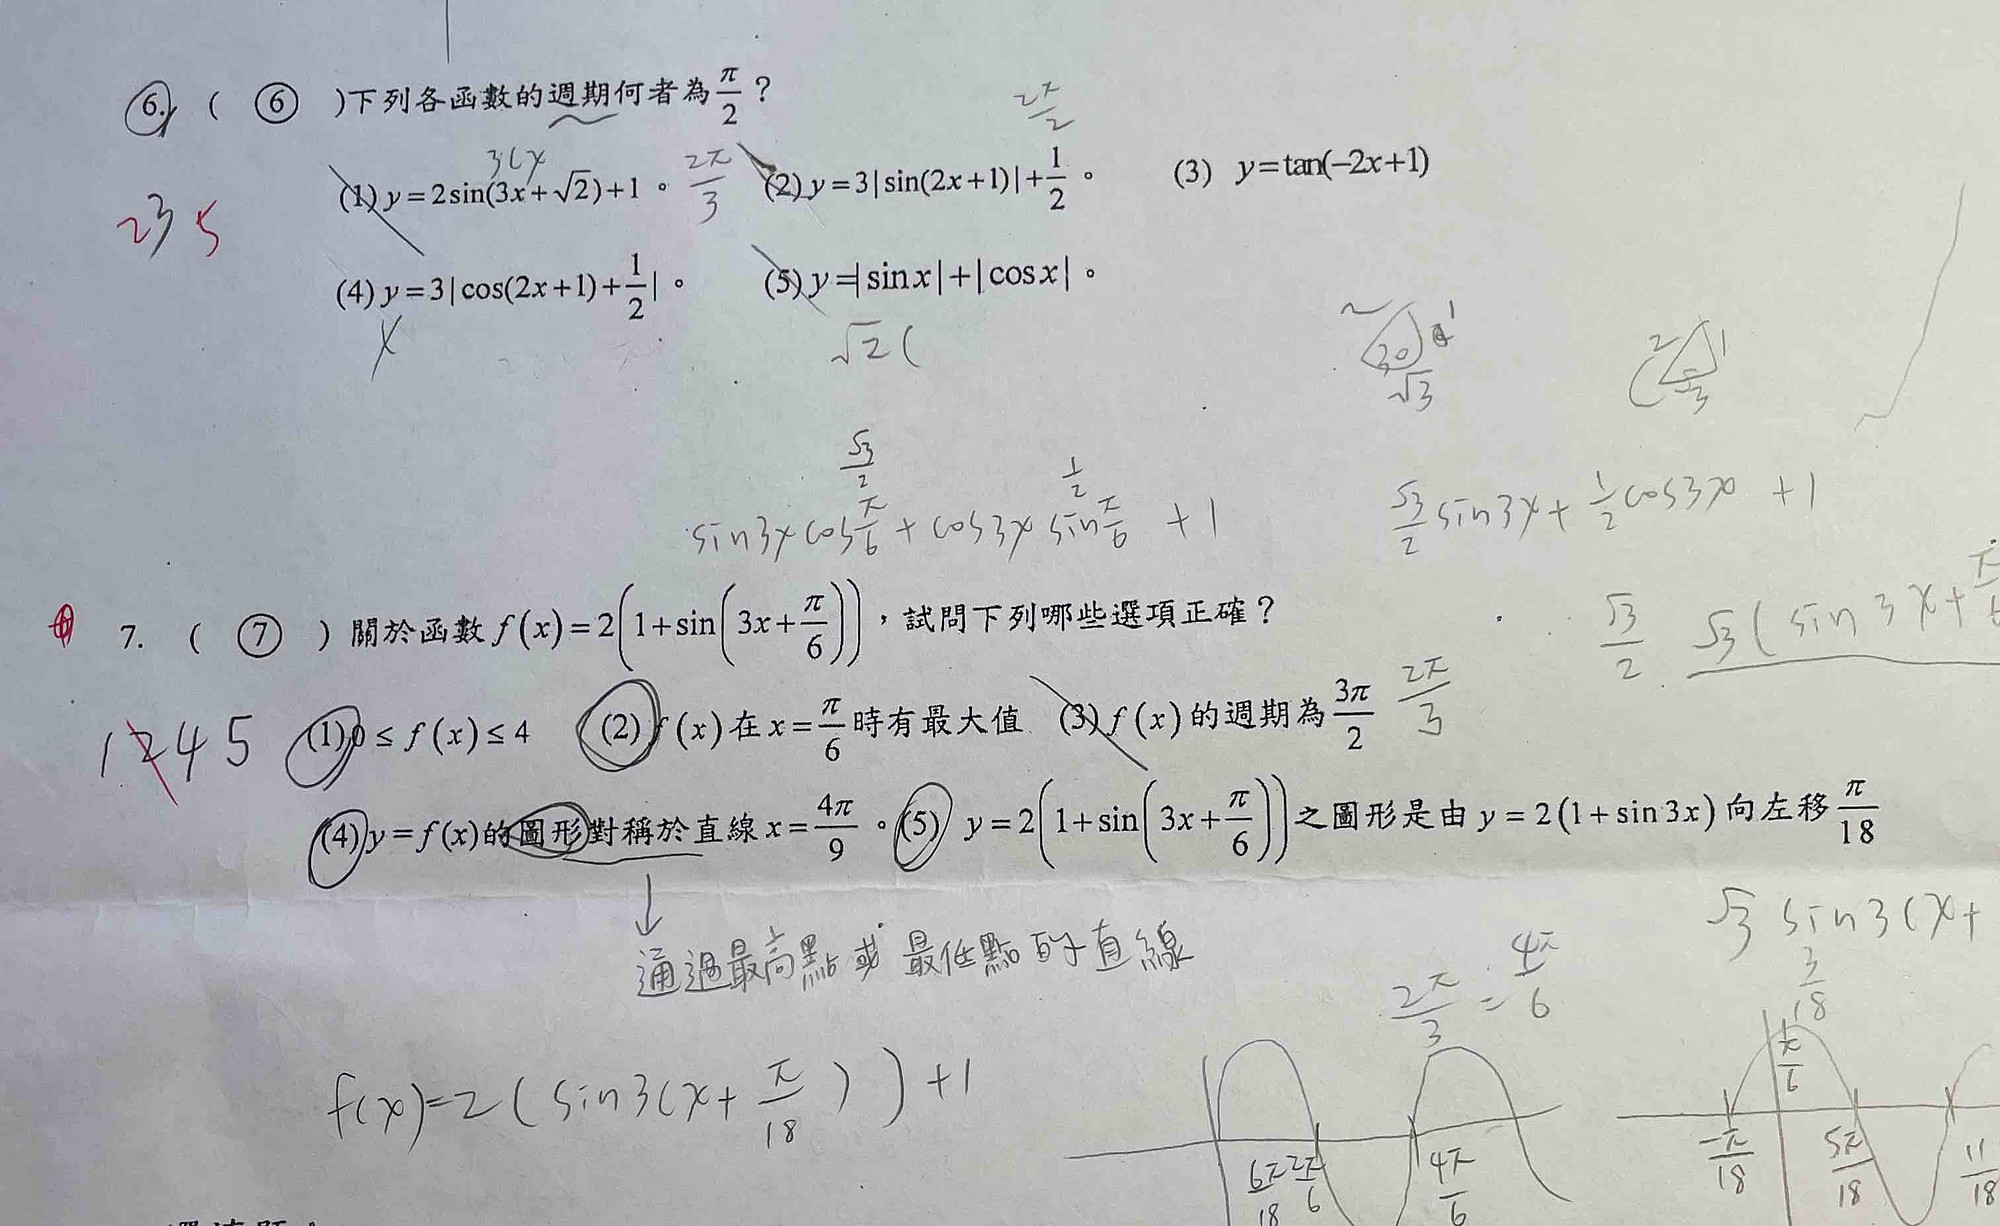 6. ( ⑥ )下列各函數的週期何者為 π/2 ?
2π/2
3(x
(1) y=2sin(3x+√2)+1。 2π/3 (2) y=3|sin(2x+1)|+1/2。 (3) y=tan(−2x+1)
2 3 5
(4) y=3|cos(2x+1)+1/2|。 (5) y=|sinx|+|cosx|。
√2(
2 30 1 √3
2 1 √3
√3/2 1/2
sin3x cos π/6 + cos3x sin π/6 +1
√3/2 sin3x + 1/2 cos3x +1
√3/2 √3(sin3x+π/6
7. ( ⑦ )關於函數 f(x)=2(1+sin(3x+π/6)),試問下列哪些選項正確?
1 2 4 5
(1) 0≤f(x)≤4 (2) f(x)在 x=π/6 時有最大值 (3) f(x)的週期為 3π/2 2π/3
(4) y=f(x)的圖形對稱於直線 x=4π/9。(5) y=2(1+sin(3x+π/6))之圖形是由 y=2(1+sin3x)向左移 π/18
↓
通過最高點或最低點的直線
√3 sin3(x+
3/18
2π/3 = 4π/6
f(x)=2(sin3(x+π/18))+1
6π/18 2π/6 4π/6
π/6
−π/18 5π/18 11/18